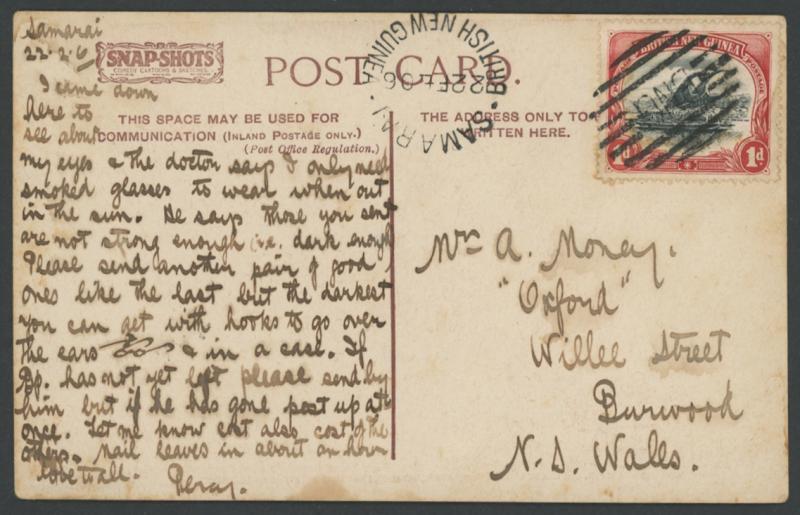 Samarai
22.2.6
SNAP-SHOTS
COMEDY CARTOONS & SKETCHES
POST CARD.
SAMARAI. BRITISH NEW GUINEA
22 FE 06
BRITISH NEW GUINEA
POSTAGE
1d. 1d.
THIS SPACE MAY BE USED FOR
COMMUNICATION (INLAND POSTAGE ONLY.)
(Post Office Regulation.)
THE ADDRESS ONLY TO
WRITTEN HERE.
I came down
here to
see about
my eyes & the doctor says I only need
smoked glasses to wear when out
in the sun. He says those you sent
are not strong enough i.e. dark enough
Please send another pair of good
ones like the last but the darkest
you can get with hooks to go over
the ears & in a case. If
Bp. has not yet left please send by
him but if he has gone post up at
once. Let me know cost also cost of the
others. Mail leaves in about an hour
love to all.
Percy.
Mr A. Money.
"Oxford"
Willee Street
Burwood
N. S. Wales.